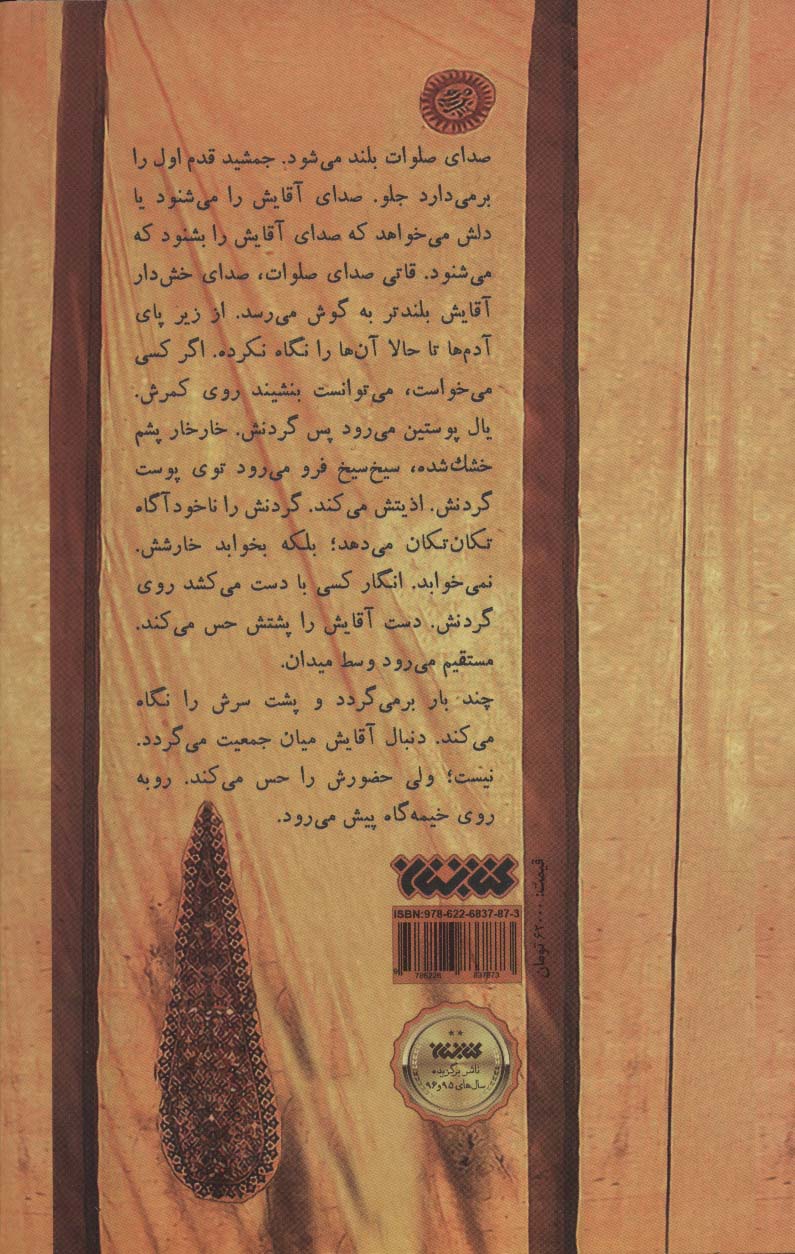 صدای صلوات بلند می‌شود. جمشید قدم اول را
برمی‌دارد جلو. صدای آقایش را می‌شنود یا
دلش می‌خواهد که صدای آقایش را بشنود که
می‌شنود. قاتی صدای صلوات، صدای خش‌دار
آقایش بلندتر به گوش می‌رسد. از زیر پای
آدم‌ها تا حالا آن‌ها را نگاه نکرده. اگر کسی
می‌خواست، می‌توانست بنشیند روی کمرش.
یال پوستین می‌رود پس گردنش. خارخار پشم
خشك‌شده، سیخ‌سیخ فرو می‌رود توی پوست
گردنش. اذیتش می‌کند. گردنش را ناخودآگاه
تکان‌تکان می‌دهد؛ بلکه بخوابد خارشش.
نمی‌خوابد. انگار کسی با دست می‌کشد روی
گردنش. دست آقایش را پشتش حس می‌کند.
مستقیم می‌رود وسط میدان.
چند بار برمی‌گردد و پشت سرش را نگاه
می‌کند. دنبال آقایش میان جمعیت می‌گردد.
نیست؛ ولی حضورش را حس می‌کند. روبه
روی خیمه‌گاه پیش می‌رود.
کتابستان
ISBN:978-622-6837-87-3
9 786226 837873
قیمت: ۶۲۰۰۰ تومان
کتابستان
ناشر برگزیده
سال‌های ۹۵و۹۶